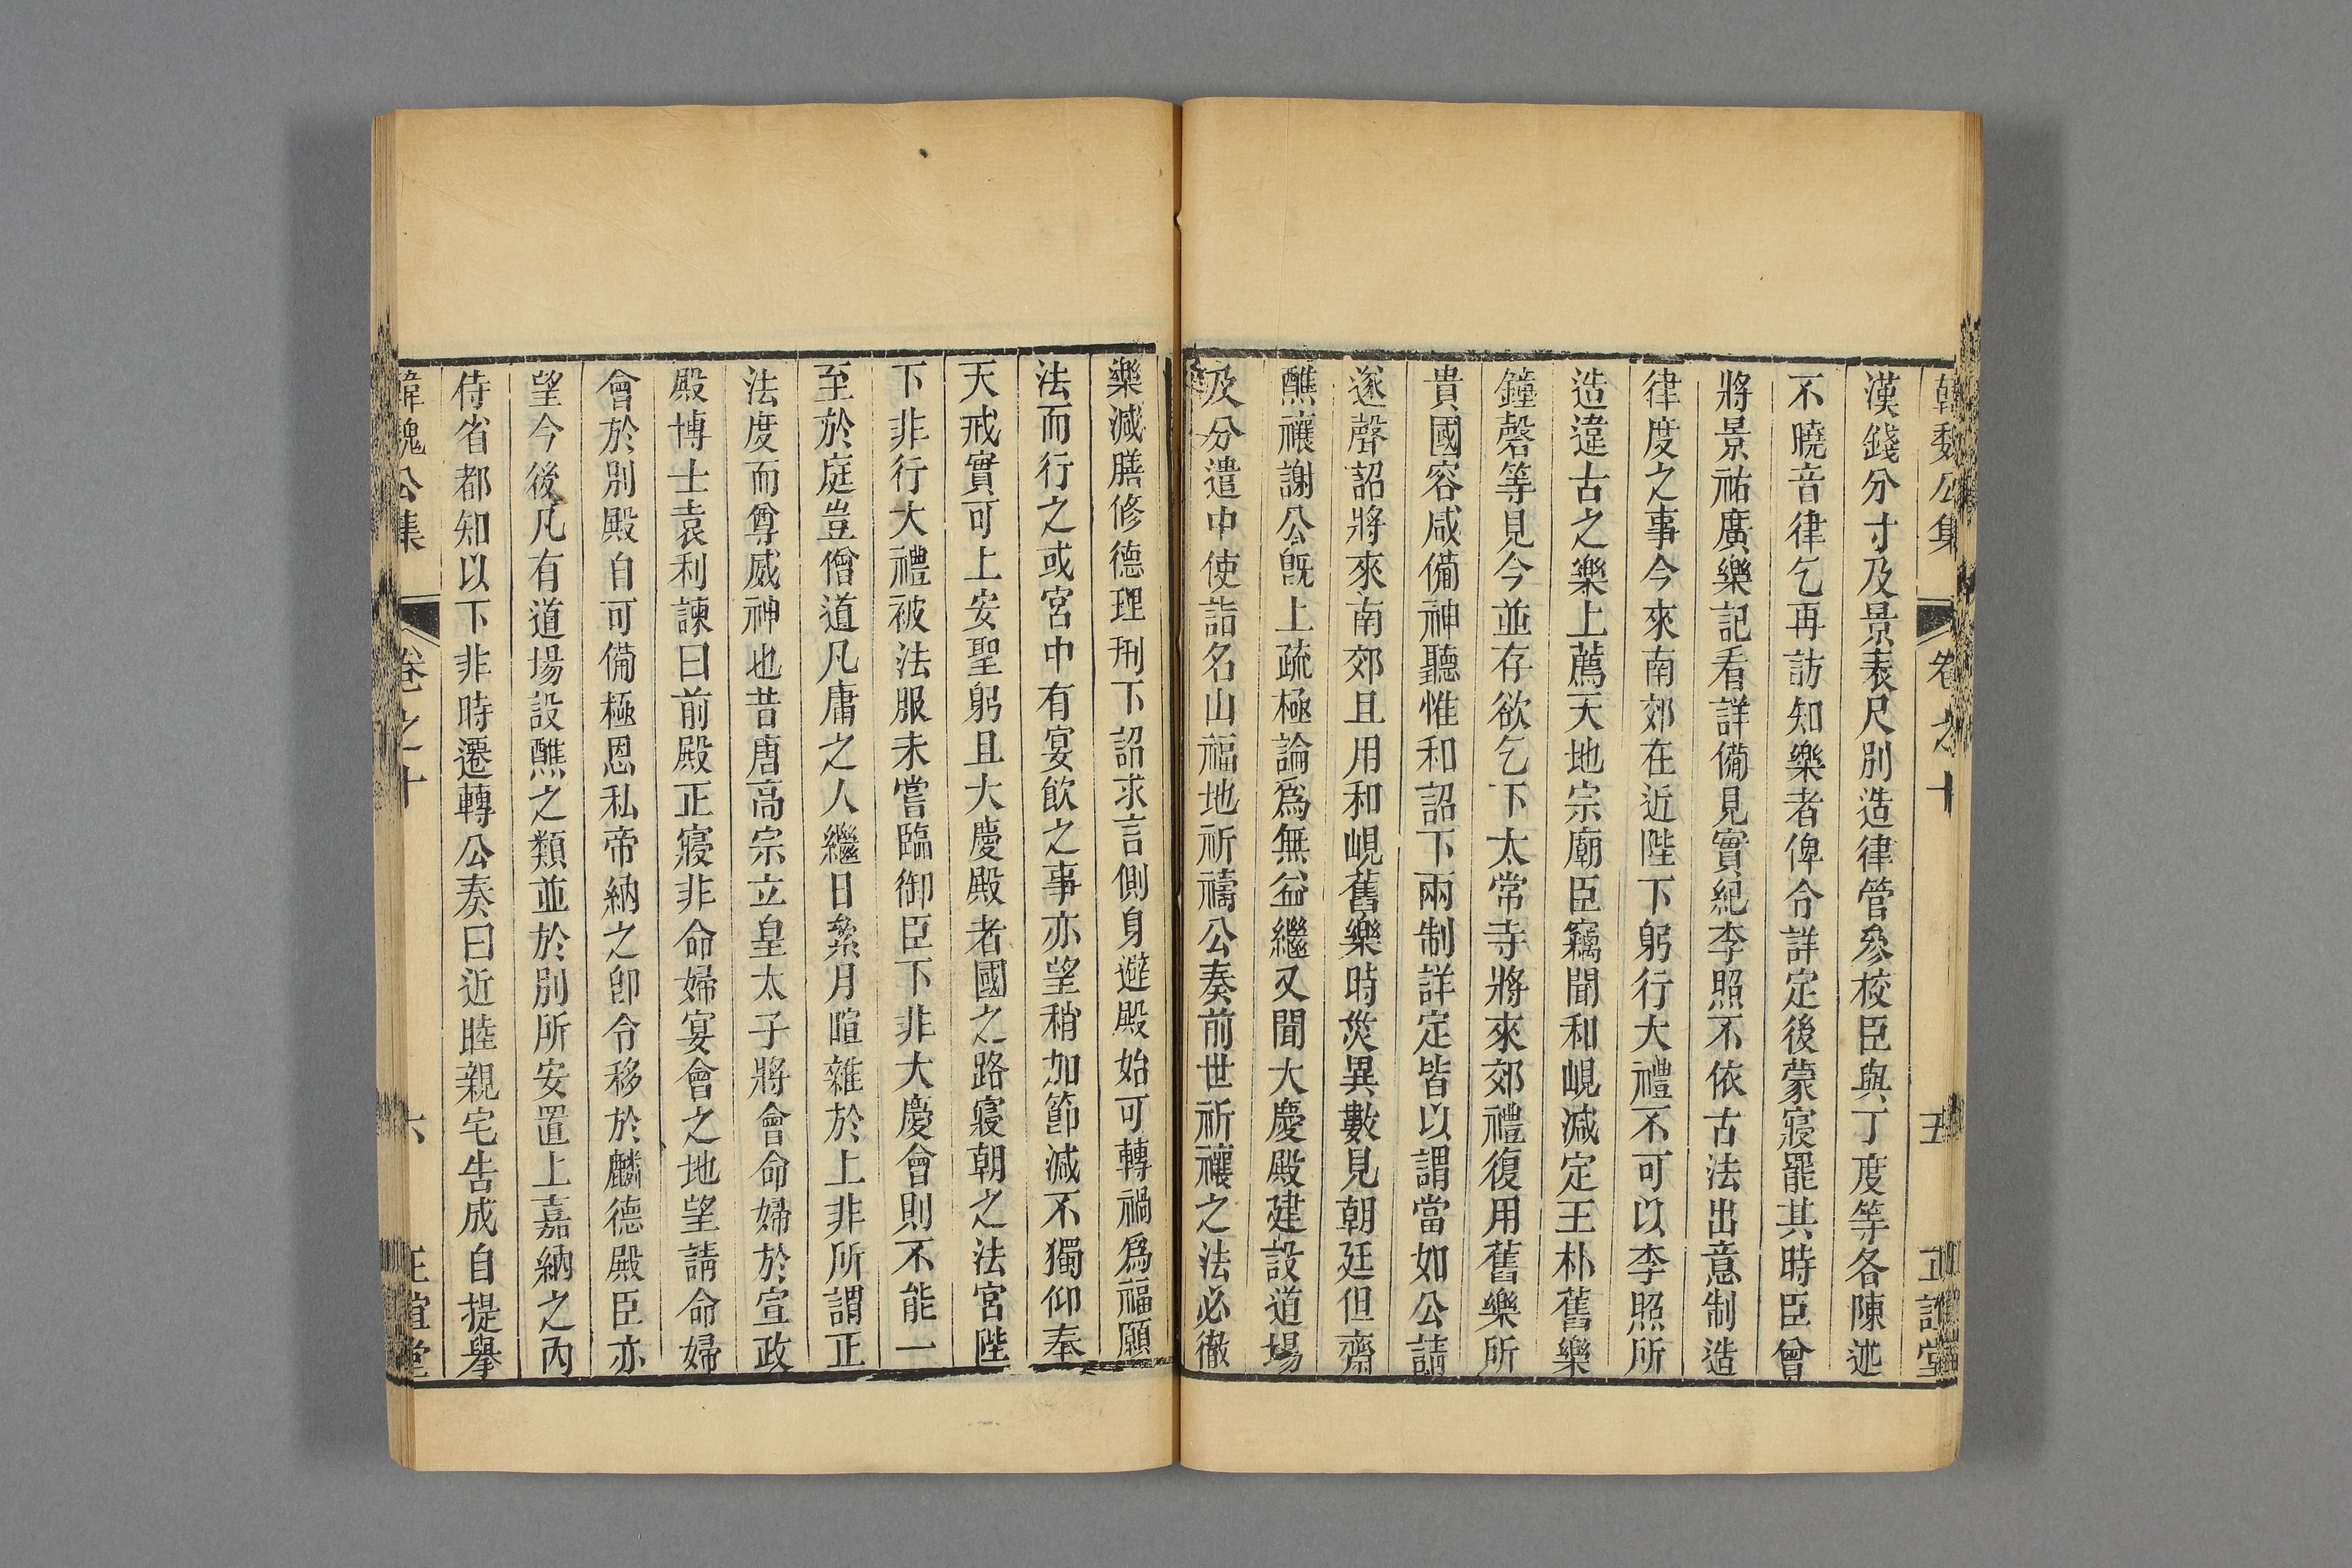 韓魏公集 卷之十 五 正誼堂
漢錢分寸及景表尺別造律管參校臣與丁度等各陳述
不曉音律乞再訪知樂者俾令詳定後蒙寢罷其時臣曾
將景祐廣樂記看詳備見實紀李照不依古法出意制造
律度之事今來南郊在近陛下躬行大禮不可以李照所
造違古之樂上薦天地宗廟臣竊聞和峴减定王朴舊樂
鐘磬等見今並存欲乞下太常寺將來郊禮復用舊樂所
貴國容咸備神聽惟和詔下兩制詳定皆以謂當如公請
遂聲詔將來南郊且用和峴舊樂時災異數見朝廷但齋
醮禳謝公旣上疏極論爲無益繼又聞大慶殿建設道場
及分遣中使詣名山福地祈禱公奏前世祈禳之法必徹
樂減膳修德理刑下詔求言側身避殿始可轉禍爲福願
法而行之或宮中有宴飲之事亦望稍加節減不獨仰奉
天戒實可上安聖躬且大慶殿者國之路寢朝之法宮陛
下非行大禮被法服未嘗臨御臣下非大慶會則不能一
至於庭豈僧道凡庸之人繼日累月喧雜於上非所謂正
法度而尊威神也昔唐高宗立皇太子將會命婦於宣政
殿博士袁利諫曰前殿正寢非命婦宴會之地望請命婦
會於別殿自可備極恩私帝納之卽令移於麟德殿臣亦
望今後凡有道場設醮之類並於別所安置上嘉納之內
侍省都知以下非時遷轉公奏曰近睦親宅告成自提舉
韓魏公集 卷之十 六 正誼堂